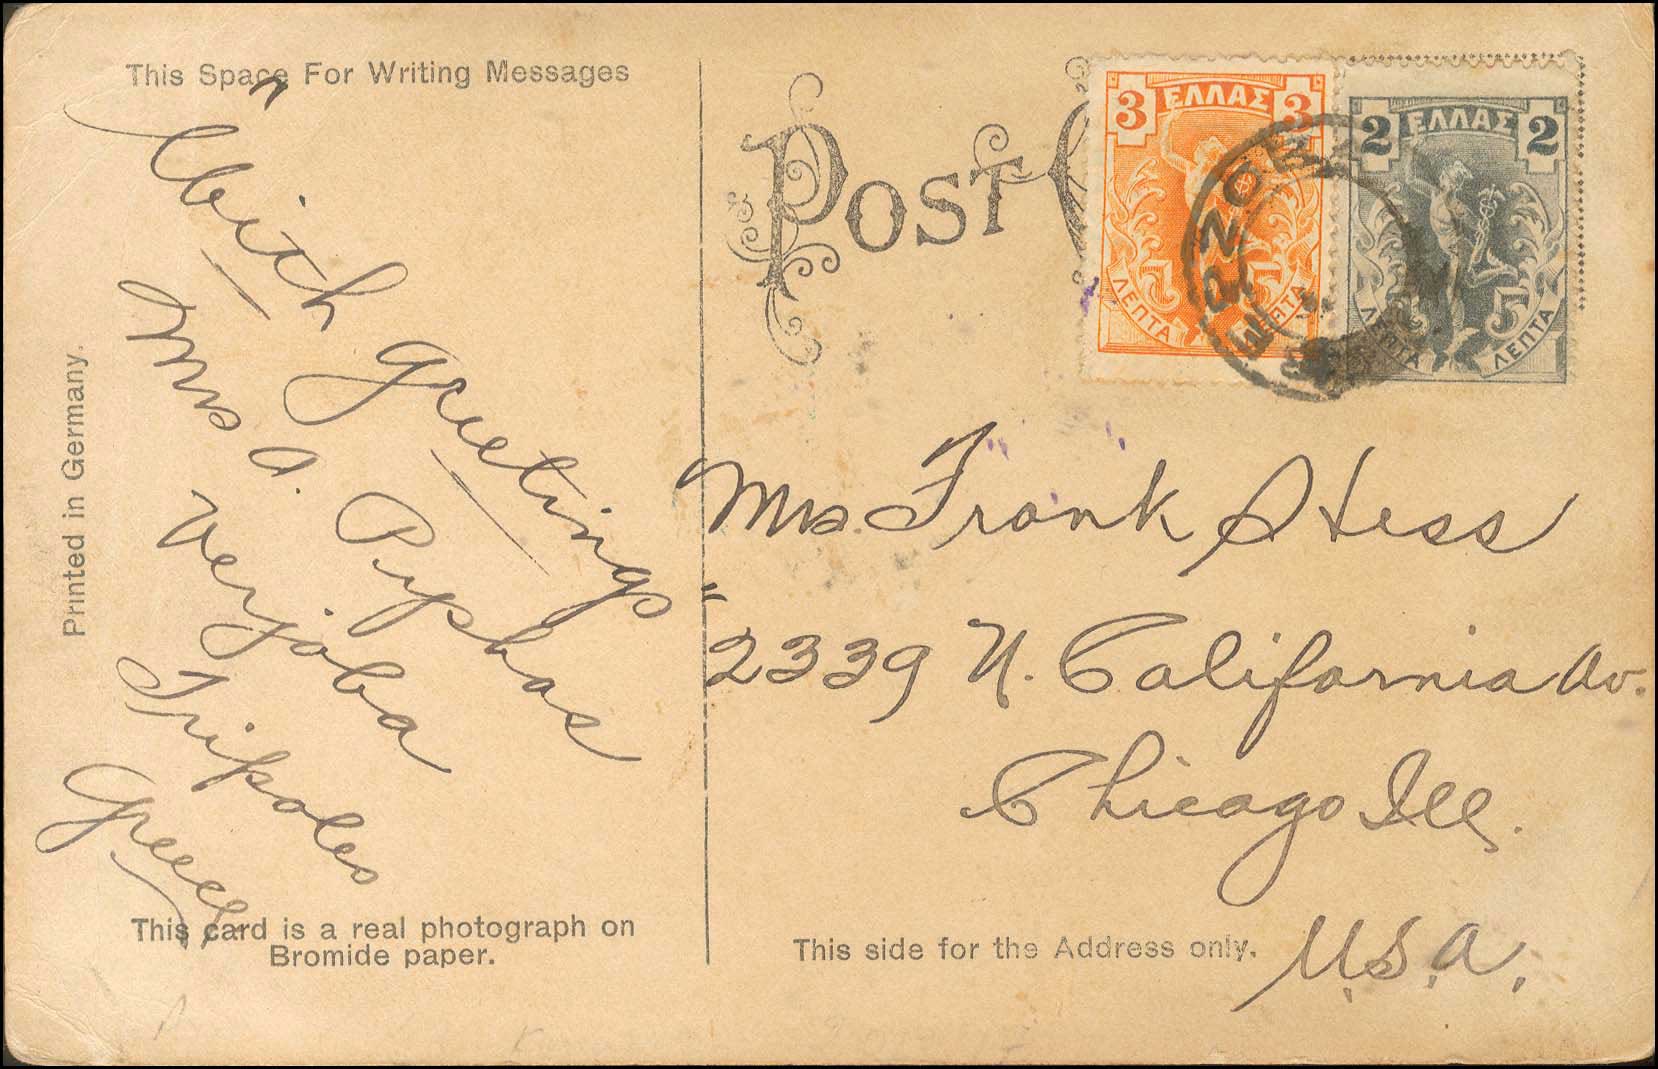 This Space For Writing Messages
With greetings
Mrs A. Pyphas
Verjoba
Tripoles
Greece
Printed in Germany.
This card is a real photograph on
Bromide paper.
POST
3 ΕΛΛΑΣ 3
ΛΕΠΤΑ ΛΕΠΤΑ
2 ΕΛΛΑΣ 2
ΛΕΠΤΑ ΛΕΠΤΑ
Mrs Frank Hess
2339 N. California Av.
Chicago Ill.
U.S.A.
This side for the Address only.